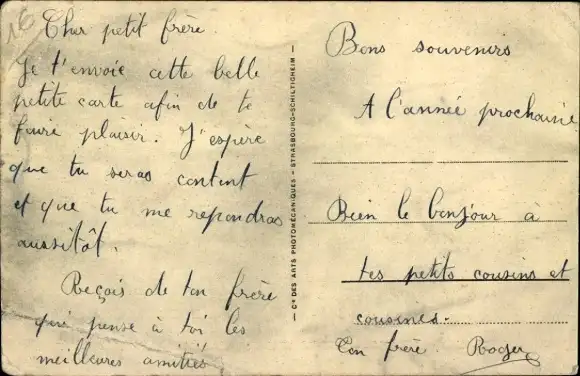 16
Cher petit frère.
Je t'envoie cette belle
petite carte afin de te
faire plaisir. J'espère
que tu seras content
et que tu me repondras
aussitôt.
Reçois de ton frère
qui pense à toi les
meilleures amitiés
— Cie DES ARTS PHOTOMÉCANIQUES — STRASBOURG-SCHILTIGHEIM —
Bons souvenirs
A l'année prochaine
Bien le bonjour à
tes petits cousins et
cousines.
Ton frère Roger